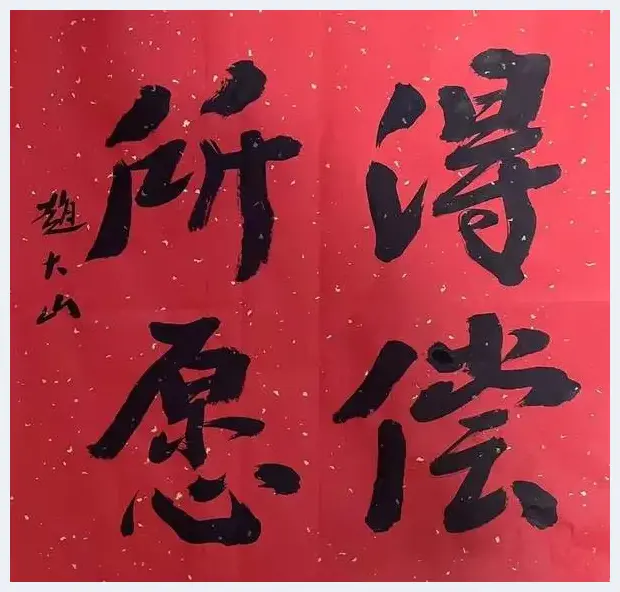 得偿
所愿
赵大山